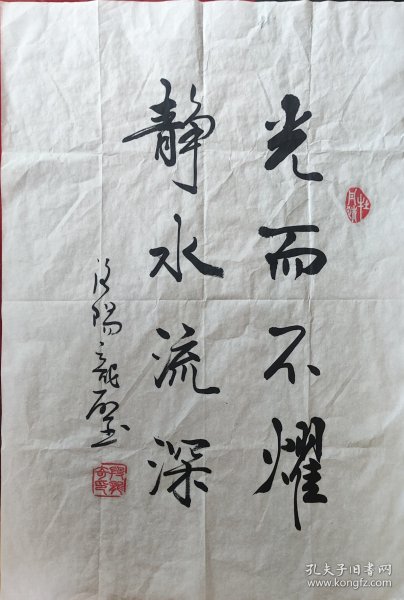 光而不耀
静水流深
孔夫子旧书网
www.kongfz.com